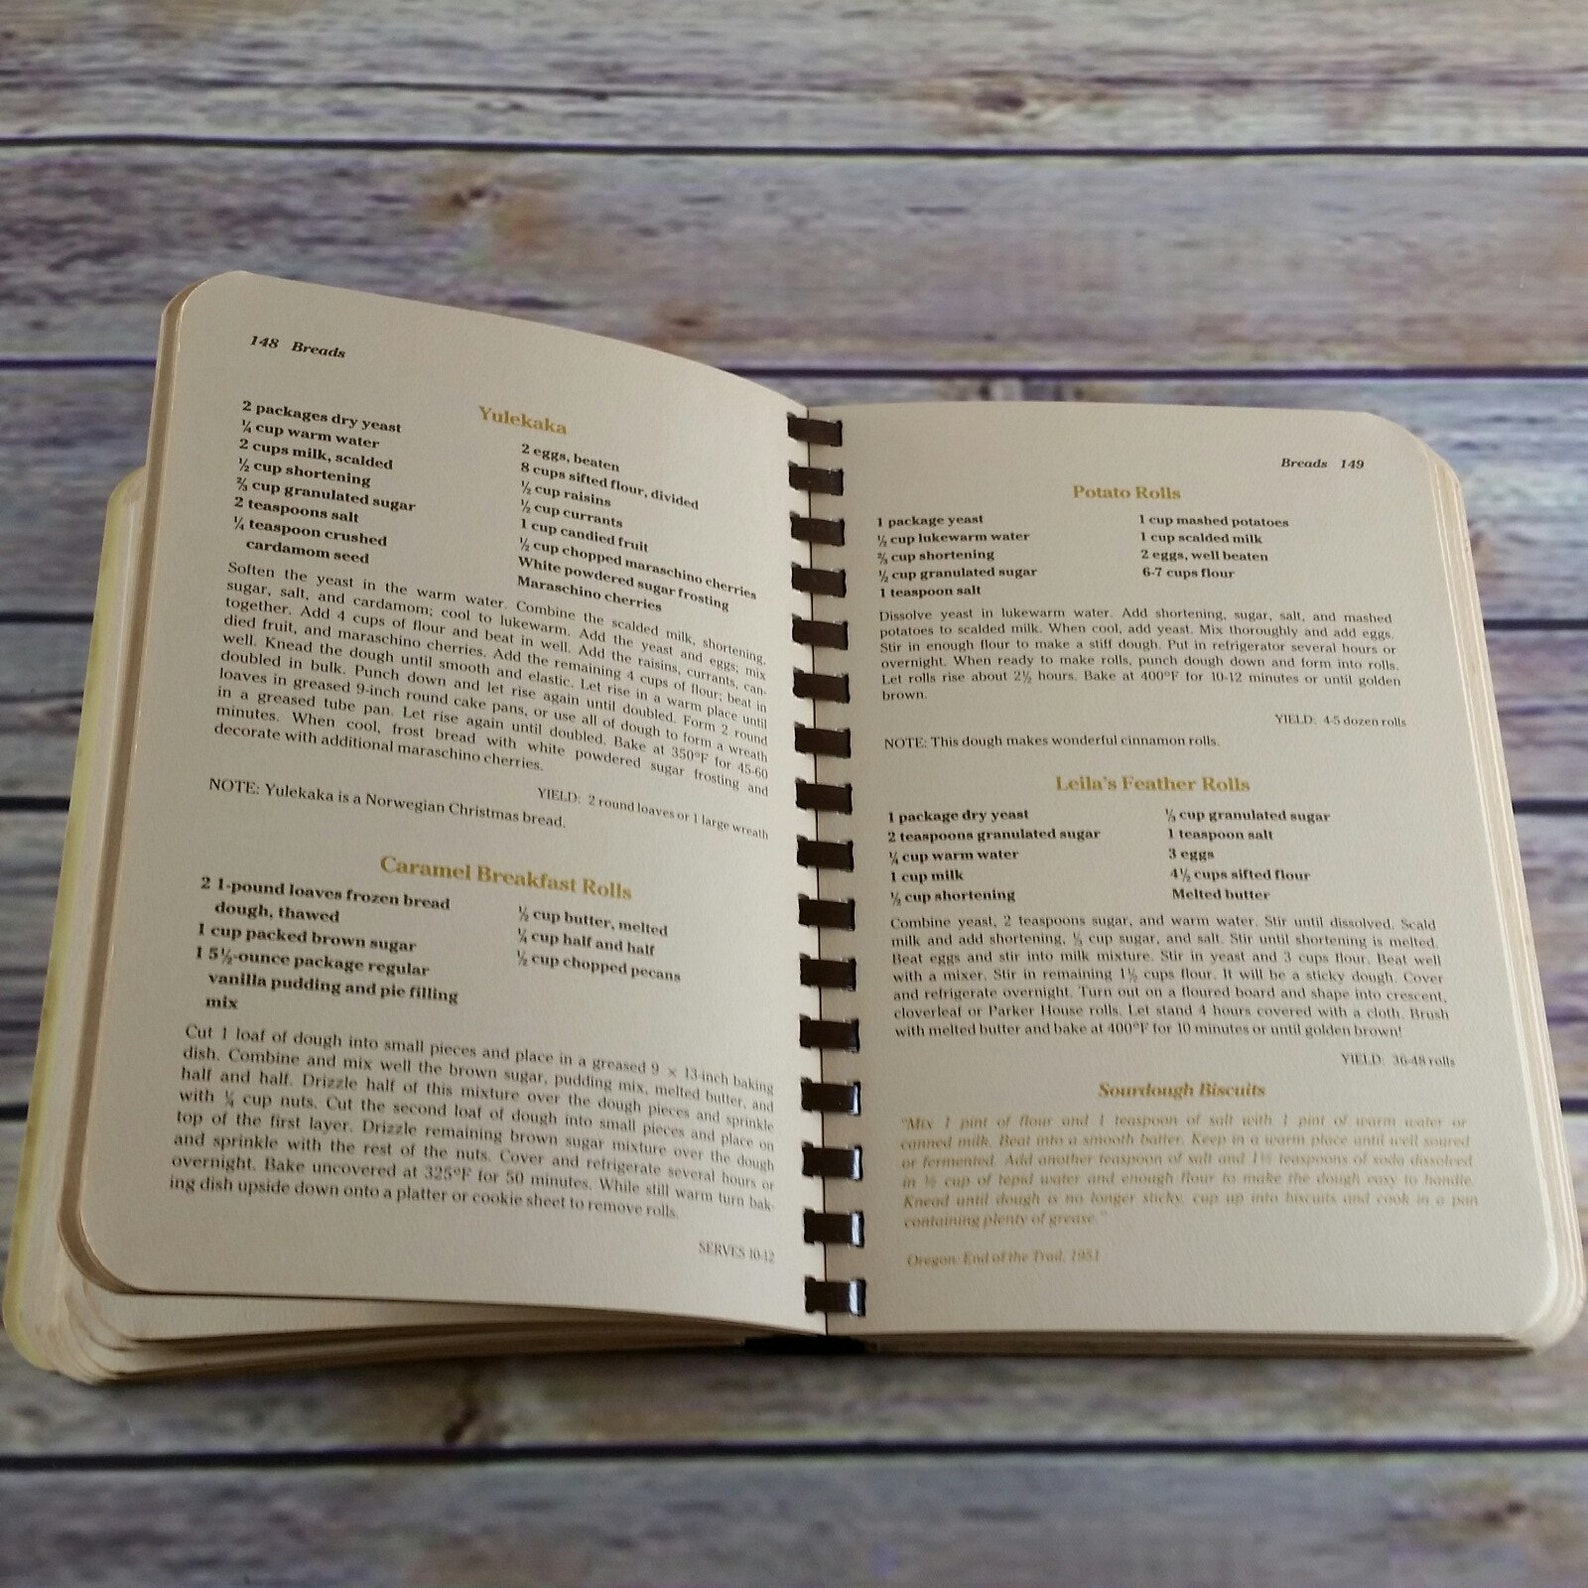 148 Breads
Yulekaka
2 packages dry yeast
¼ cup warm water
2 cups milk, scalded
½ cup shortening
⅔ cup granulated sugar
2 teaspoons salt
¼ teaspoon crushed
cardamom seed
2 eggs, beaten
8 cups sifted flour, divided
½ cup raisins
½ cup currants
1 cup candied fruit
½ cup chopped maraschino cherries
White powdered sugar frosting
Maraschino cherries
Soften the yeast in the warm water. Combine the scalded milk, shortening,
sugar, salt, and cardamom; cool to lukewarm. Add the yeast and eggs; mix
together. Add 4 cups of flour and beat in well. Add the raisins, currants, can-
died fruit, and maraschino cherries. Add the remaining 4 cups of flour; beat in
well. Knead the dough until smooth and elastic. Let rise in a warm place until
doubled in bulk. Punch down and let rise again until doubled. Form 2 round
loaves in greased 9-inch round cake pans, or use all of dough to form a wreath
in a greased tube pan. Let rise again until doubled. Bake at 350°F for 45-60
minutes. When cool, frost bread with white powdered sugar frosting and
decorate with additional maraschino cherries.
YIELD: 2 round loaves or 1 large wreath
NOTE: Yulekaka is a Norwegian Christmas bread.
Caramel Breakfast Rolls
2 1-pound loaves frozen bread
dough, thawed
1 cup packed brown sugar
1 5½-ounce package regular
vanilla pudding and pie filling
mix
½ cup butter, melted
¼ cup half and half
½ cup chopped pecans
Cut 1 loaf of dough into small pieces and place in a greased 9 × 13-inch baking
dish. Combine and mix well the brown sugar, pudding mix, melted butter, and
half and half. Drizzle half of this mixture over the dough pieces and sprinkle
with ¼ cup nuts. Cut the second loaf of dough into small pieces and place on
top of the first layer. Drizzle remaining brown sugar mixture over the dough
and sprinkle with the rest of the nuts. Cover and refrigerate several hours or
overnight. Bake uncovered at 325°F for 50 minutes. While still warm turn bak-
ing dish upside down onto a platter or cookie sheet to remove rolls.
SERVES 10-12
Breads 149
Potato Rolls
1 package yeast
½ cup lukewarm water
⅔ cup shortening
½ cup granulated sugar
1 teaspoon salt
1 cup mashed potatoes
1 cup scalded milk
2 eggs, well beaten
6-7 cups flour
Dissolve yeast in lukewarm water. Add shortening, sugar, salt, and mashed
potatoes to scalded milk. When cool, add yeast. Mix thoroughly and add eggs.
Stir in enough flour to make a stiff dough. Put in refrigerator several hours or
overnight. When ready to make rolls, punch dough down and form into rolls.
Let rolls rise about 2½ hours. Bake at 400°F for 10-12 minutes or until golden
brown.
YIELD: 4-5 dozen rolls
NOTE: This dough makes wonderful cinnamon rolls.
Leila's Feather Rolls
1 package dry yeast
2 teaspoons granulated sugar
¼ cup warm water
1 cup milk
⅓ cup shortening
⅓ cup granulated sugar
1 teaspoon salt
3 eggs
4½ cups sifted flour
Melted butter
Combine yeast, 2 teaspoons sugar, and warm water. Stir until dissolved. Scald
milk and add shortening, ⅓ cup sugar, and salt. Stir until shortening is melted.
Beat eggs and stir into milk mixture. Stir in yeast and 3 cups flour. Beat well
with a mixer. Stir in remaining 1½ cups flour. It will be a sticky dough. Cover
and refrigerate overnight. Turn out on a floured board and shape into crescent,
cloverleaf or Parker House rolls. Let stand 4 hours covered with a cloth. Brush
with melted butter and bake at 400°F for 10 minutes or until golden brown!
YIELD: 36-48 rolls
Sourdough Biscuits
"Mix 1 pint of flour and 1 teaspoon of salt with 1 pint of warm water or
canned milk. Beat into a smooth batter. Keep in a warm place until well soured
or fermented. Add another teaspoon of salt and 1½ teaspoons of soda dissolved
in ½ cup of tepid water and enough flour to make the dough easy to handle.
Knead until dough is no longer sticky, cup up into biscuits and cook in a pan
containing plenty of grease."
Oregon: End of the Trail, 1951